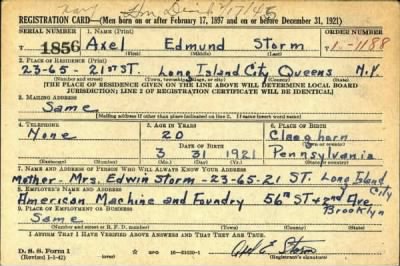 REGISTRATION CARD—(Men born on or after February 17, 1897 and on or before December 31, 1921)
SERIAL NUMBER 1. NAME (Print) ORDER NUMBER
T 1856 Axel Edmund Storm 11188
(First) (Middle) (Last)
2. PLACE OF RESIDENCE (Print)
23-65-21 ST. Long Island City Queens N.Y.
(Number and street) (Town, township, village, or city) (County) (State)
[THE PLACE OF RESIDENCE GIVEN ON THE LINE ABOVE WILL DETERMINE LOCAL BOARD
JURISDICTION; LINE 2 OF REGISTRATION CERTIFICATE WILL BE IDENTICAL]
3. MAILING ADDRESS
Same
[Mailing address if other than place indicated on line 2. If same insert word same]
4. TELEPHONE 5. AGE IN YEARS 6. PLACE OF BIRTH
None 20 Claeghorn
DATE OF BIRTH (Town or county)
3 31 1921 Pennsylvania
(Exchange) (Number) (Mo.) (Day) (Yr.) (State or country)
7. NAME AND ADDRESS OF PERSON WHO WILL ALWAYS KNOW YOUR ADDRESS
Mother - Mrs. Edwin Storm - 23-65-21 ST. Long Island City
8. EMPLOYER'S NAME AND ADDRESS
American Machine and Foundry 56th ST + 2nd Ave Brooklyn
9. PLACE OF EMPLOYMENT OR BUSINESS
Same
(Number and street or R. F. D. number) (Town) (County) (State)
I AFFIRM THAT I HAVE VERIFIED ABOVE ANSWERS AND THAT THEY ARE TRUE.
D. S. S. Form 1
(Revised 1-1-42) (over) Axel E. Storm
(Registrant's signature)